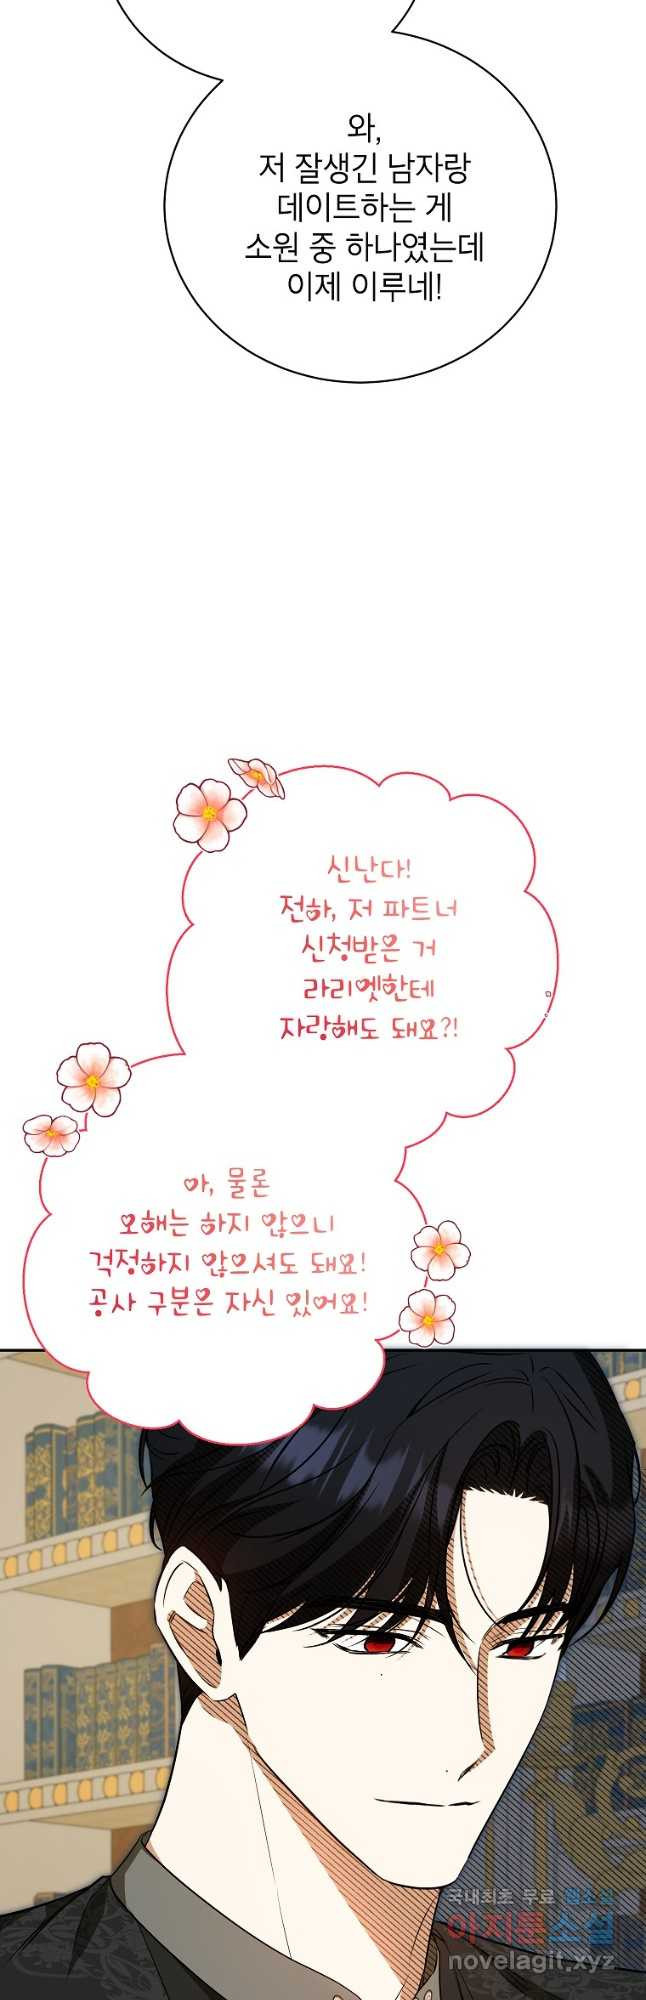 와,
저 잘생긴 남자랑
데이트하는 게
소원 중 하나였는데
이제 이루네!
신난다!
전하, 저 파트너
신청받은 거
라리엣한테
자랑해도 돼요?!
아, 물론
오해는 하지 않으니
걱정하지 않으셔도 돼요!
공사 구분은 자신 있어요!
국내최초 무료 웹소설
아지툰소설
novelagit.xyz